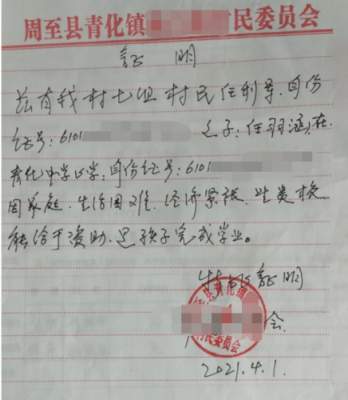 周至县青化镇 民委员会
证明
兹有我村七组村民任利 身份
证号:6101 之子:任羽涵,在
青化中学上学,身份证号:6101
因家庭生活困难,经济紧张,
能给于资助,让孩子完成学业。
特此证明
会
民委员会
2021.4.1.